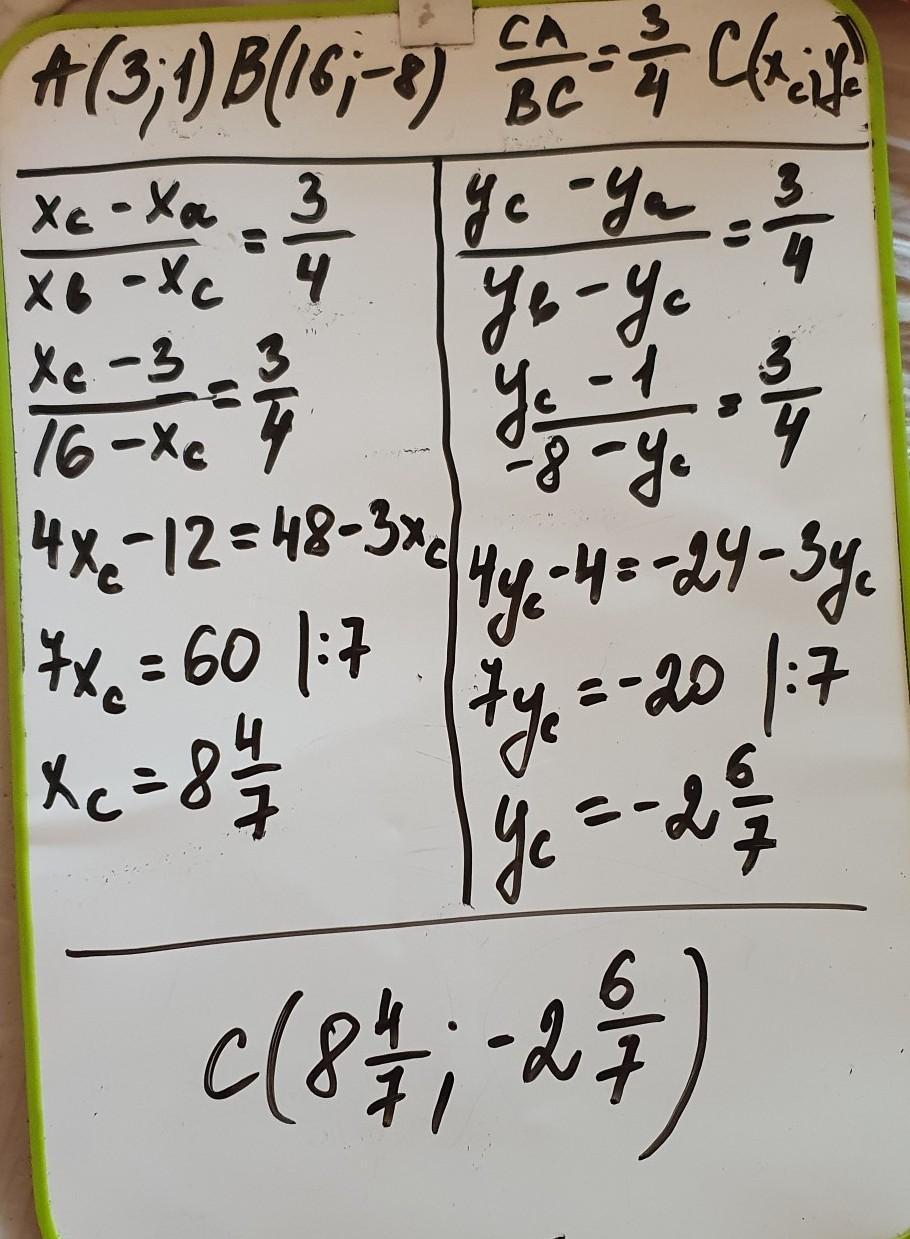 A(3;1) B(16;-8) CA/BC = 3/4 C(x_c; y_c)
(x_c - x_a)/(x_b - x_c) = 3/4
(x_c - 3)/(16 - x_c) = 3/4
4x_c - 12 = 48 - 3x_c
7x_c = 60 |:7
x_c = 8 4/7
(y_c - y_a)/(y_b - y_c) = 3/4
(y_c - 1)/(-8 - y_c) = 3/4
4y_c - 4 = -24 - 3y_c
7y_c = -20 |:7
y_c = -2 6/7
C(8 4/7; -2 6/7)